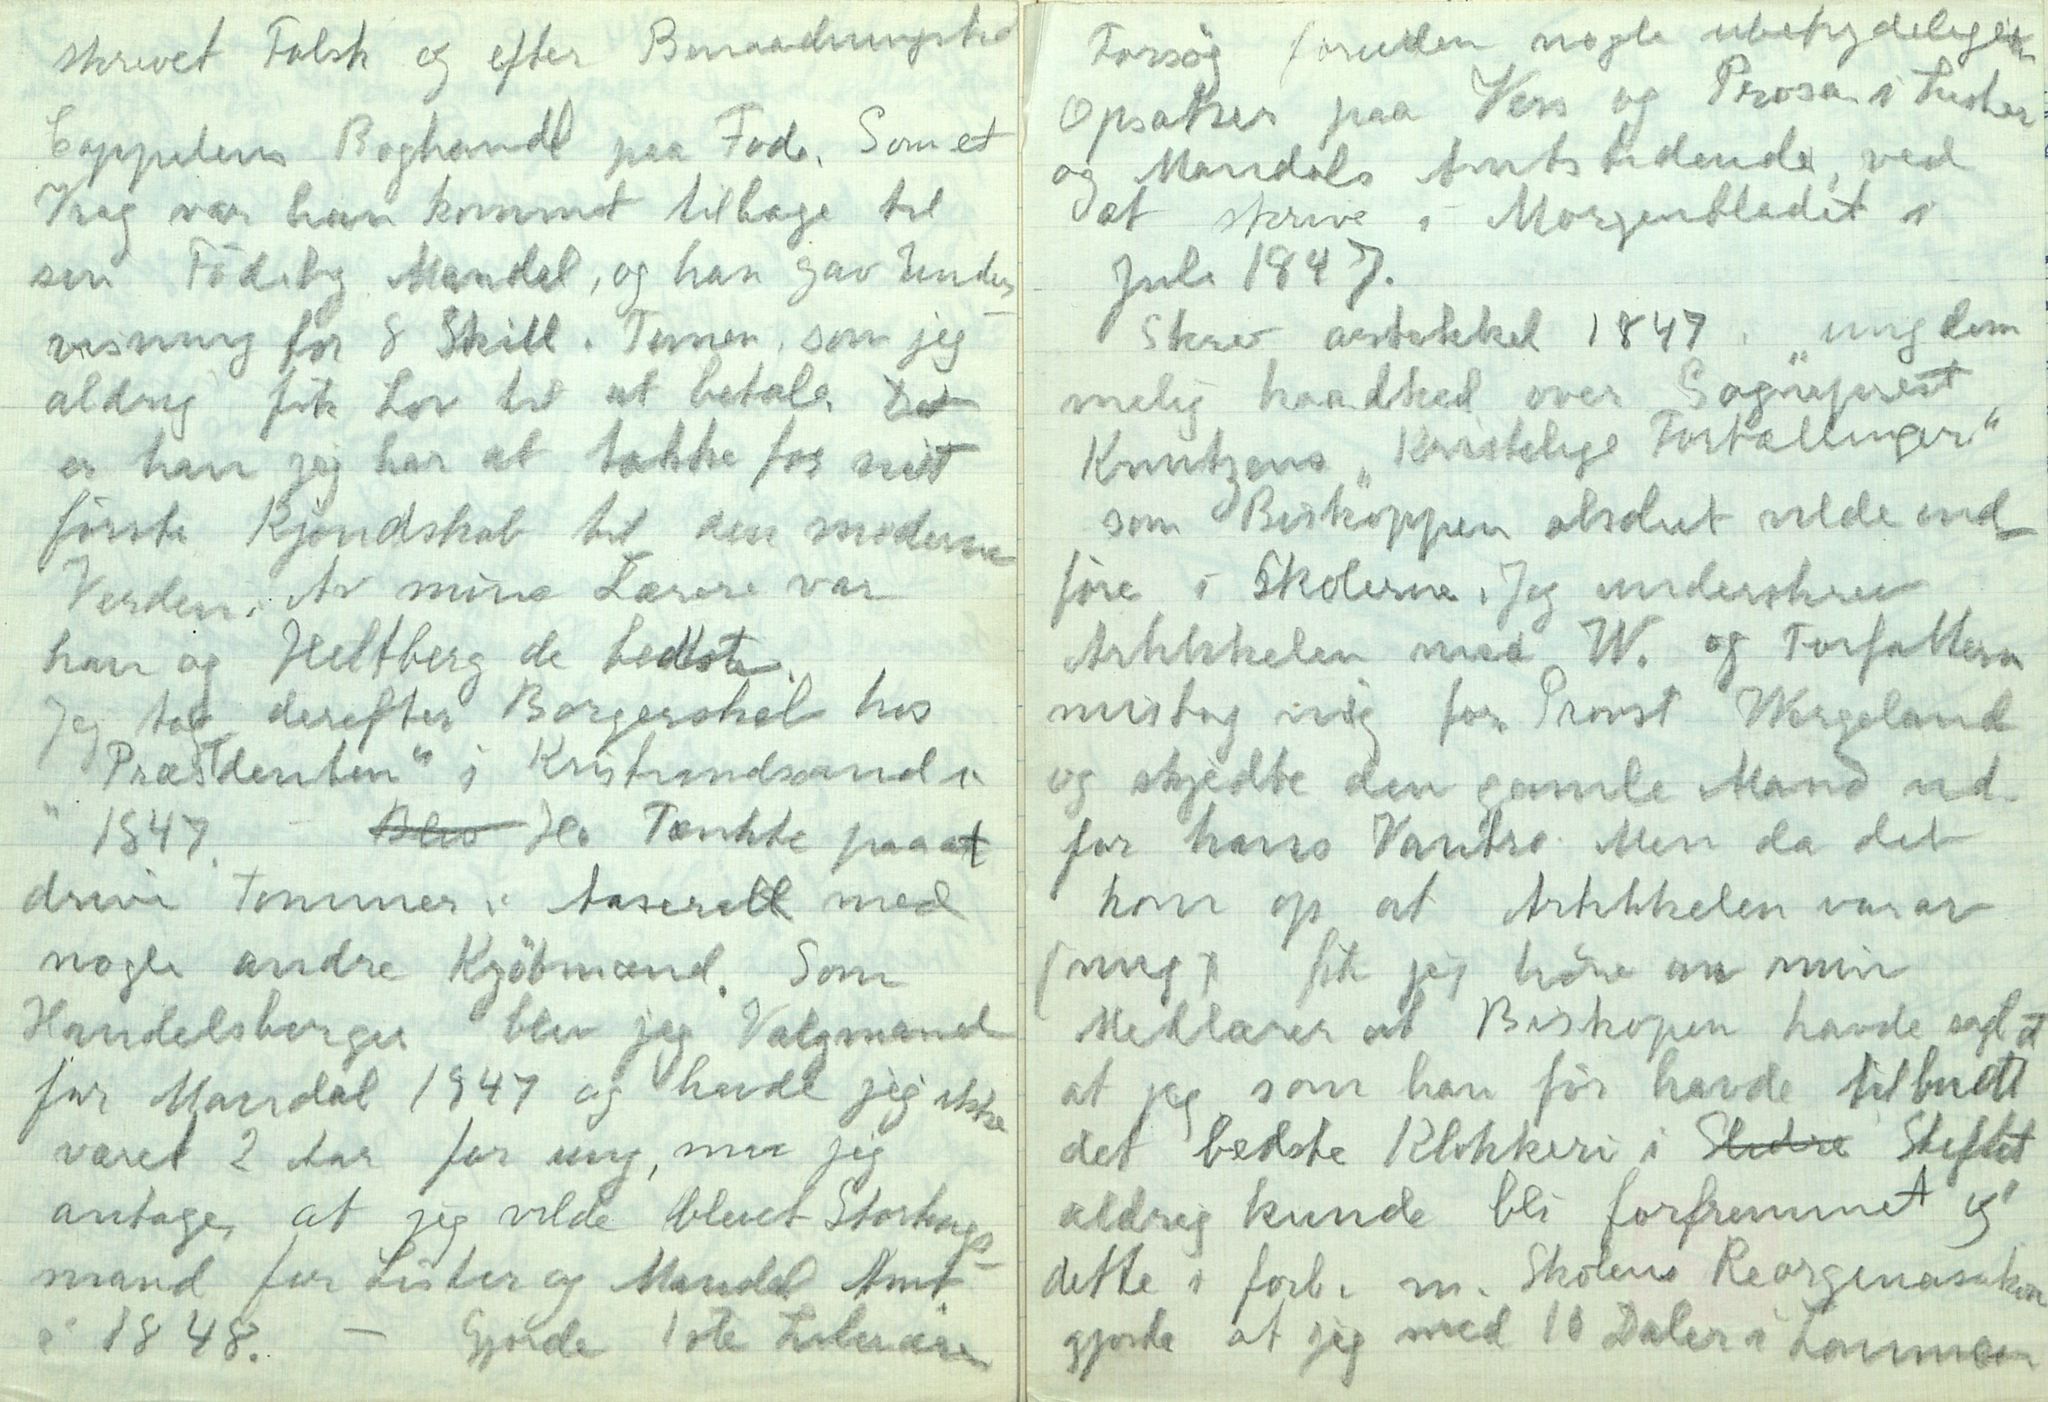 skrevet Falsk og efter Benaadningstid
Cappelens Boghandl paa Fode. Som et
Vrag var han kommet tilbage til
sin Födeby Mandal, og han gav Under
visning for 8 Skill. Timen, som jeg
aldrig fik Lov til at betale. Det
er han jeg har at takke for mit
förste Kjendskab til den moderne
Verden. Av mine Lærere var
han og Heltberg de bedste.
Jeg tog derefter Borgerskab hos
"Præsidenten" i Kristiandsand i
1847. – Blev Jeg Tænkte paa at
drive Tommer i Aaserall med
nogle andre Kjöbmænd. Som
Handelsborger blev jeg Valgmand
for Mandal 1847 og havde jeg ikke
været 2 Aar for ung, maa jeg
antage, at jeg vilde blevet Stortings-
mand for Lister og Mandal Amt
i 1848. – Gjorde 1ste Literære
Forsög foruden nogle ubetydelige
Opsatser paa Vers og Prosa i Lister
og Mandals Amtstidende, ved
at skrive i Morgenbladet i
Juli 1847.
Skrev artikkel 1847 i „ungdom
melig haadhed over Sogneprest
Knutzens „Kristelige Fortællinger"
som Biskoppen absolut vilde ind
före i Skolerne. Jeg underskrev
Artikkelen med W. og Forfatteren
mistog mig for Provst Wergeland
og skjedte den gamle Mand ud
for hans Vantro. Men da det
kom op at Artikkelen var av
(mig) fik jeg höre av min
Medlærer at Biskopen havde sagt at
at jeg som han för havde tilbudt
det bedste Klokkeri i Stedre Stiftet
aldrig kunde bli forfremmet og
dette i forb. m. Skolens Reorganisation
gjorde at jeg med 10 Daler i Lommen